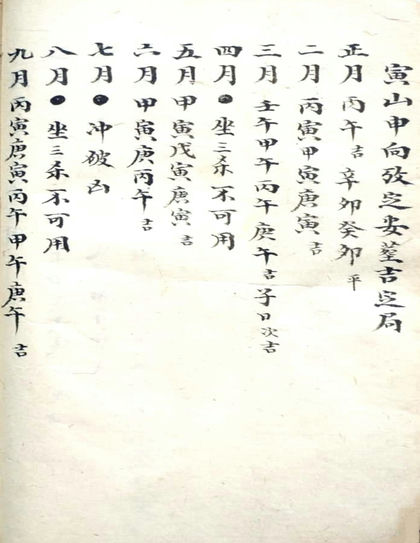 寅山申向攷定安葬吉定局
正月丙午吉辛卯癸卯平
二月丙寅甲寅庚寅吉
三月壬午甲午丙午庚午吉子日次吉
四月●坐三杀不可用
五月甲寅戊寅庚寅吉
六月甲寅庚丙午吉
七月●冲破凶
八月●坐三杀不可用
九月丙寅庚寅丙午甲午庚午吉